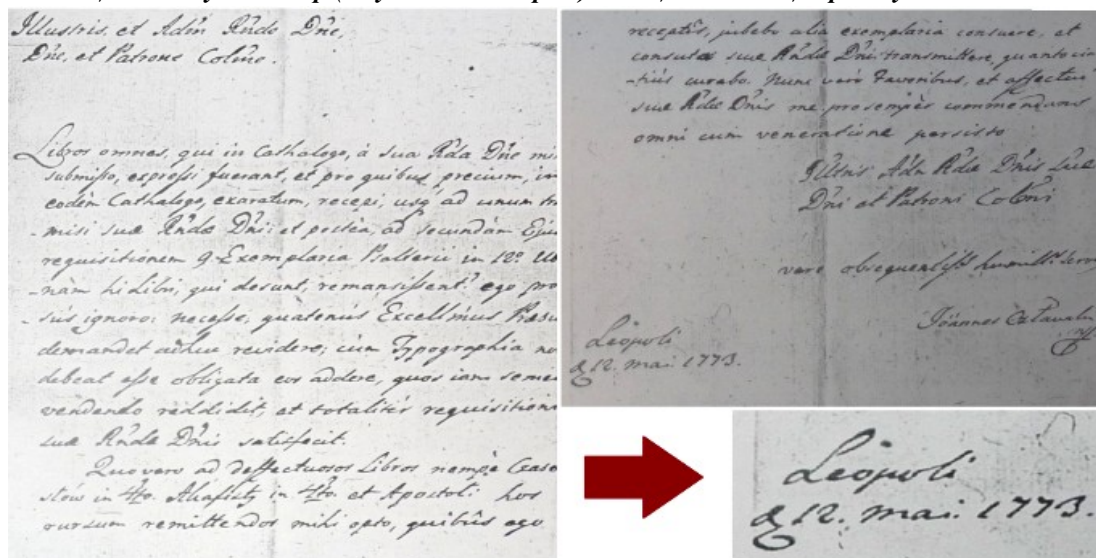 Illustris, et Adm̃ Rñde Dñe,
Dñe, et Patrone Colm̃e.
Libros omnes, qui in Cathalogo, à sua Rñda Dñe mi
submisso, expressi fuerant, et pro quibus precium, in
eodem Cathalogo, exaratum, recepi, usq ad unum tr
-misi suæ Rñdæ Dñi: et posteà, ad secundam Ejus
requisitionem 9 Exemplaria Psalterii in 12º
-nàm hi libri, qui desunt, remansissent, ego pro
-sus ignoro: necesse, quatenùs Excellm̃us Præsu
demandet adhuc revidere; cùm Typographia no
debeat esse obligata eos addere, quos iam seme
vendendo reddidit, et totalitèr requisitioni
suæ Rñdæ Dñis satisfecit.
Quo vero ad deffectuosos Libros nempè Czaso
stow in 4to. in 4to. et Apostoł: hos
rursum remittendos mihi opto, quibus ego
receptis, jubebo alia exemplaria consuere, et
consuta suæ Rñdæ Dñi: transmittere, quantociu
-tiùs curabo. Nunc verò Favoribus, et affectui
suæ Rñdæ Dñis me pro sempèr commendans
omni cum veneratione persisto
Illtris, Adm̃ Rñdæ Dñis Suæ
Dñi et Patroni Colm̃i
vere obsequentiss. humill.
Joannes
Leopoli
d 12. mai. 1773.
Leopoli
d 12. mai. 1773.